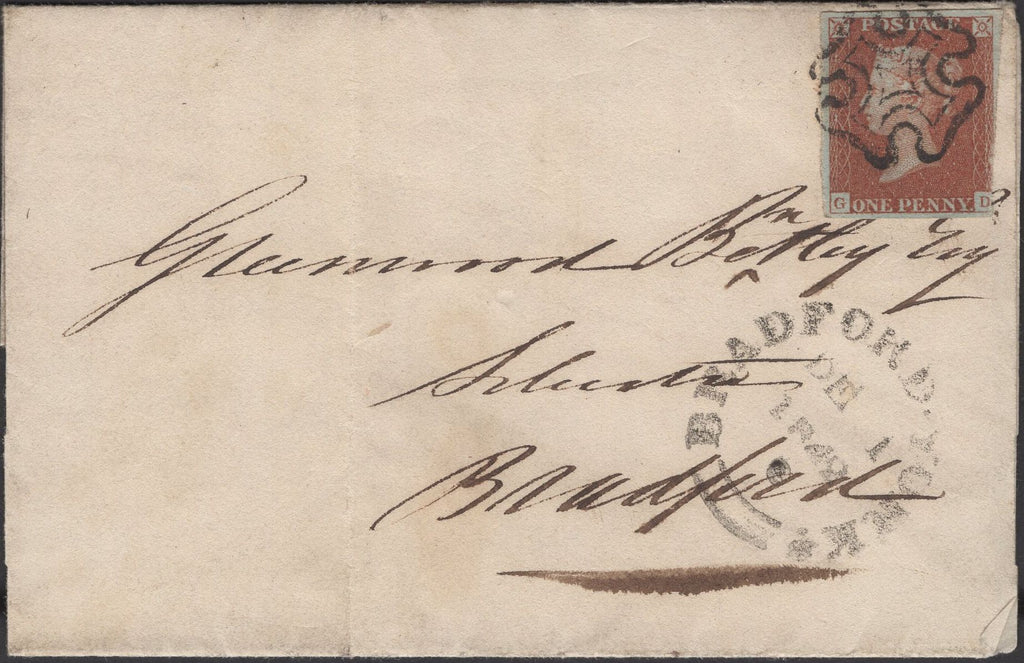 POSTAGE
G D
ONE PENNY
Greenwood Bentley Esq
Solicitor
Bradford
BRADFORD·YORKS
DE 1